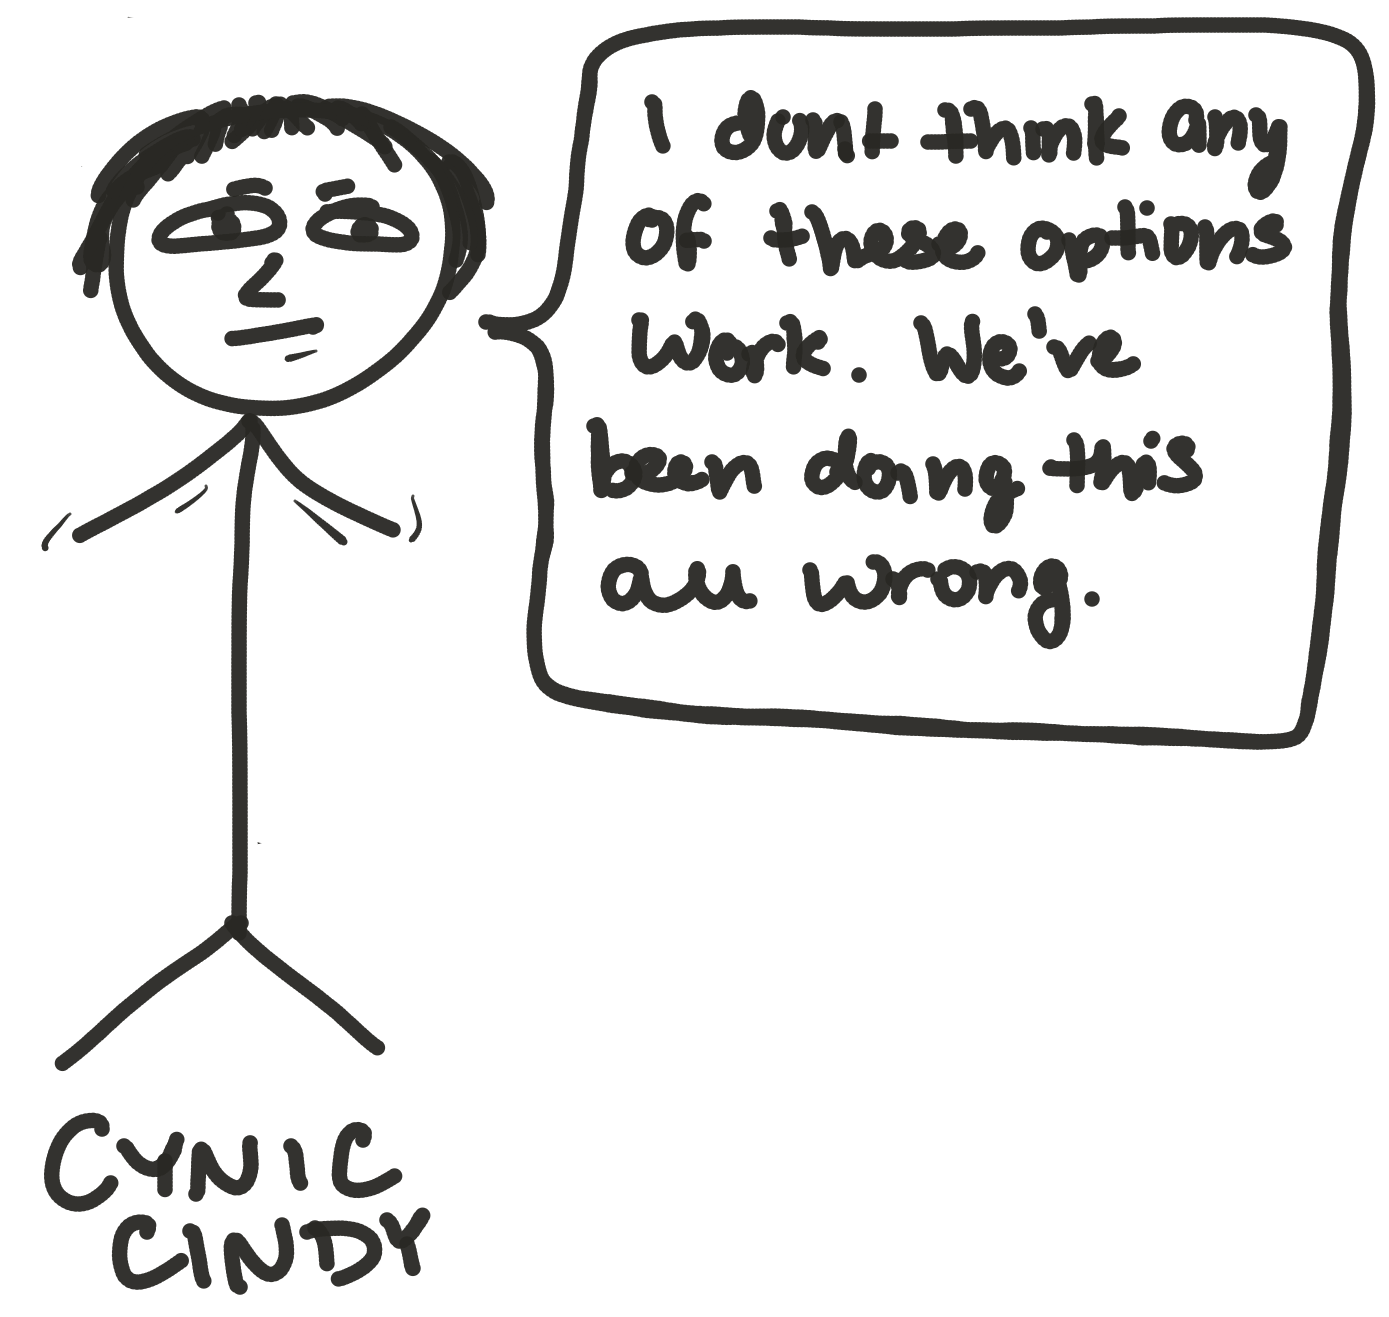 I dont think any
of these options
work. We've
been doing this
all wrong.
CYNIC
CINDY